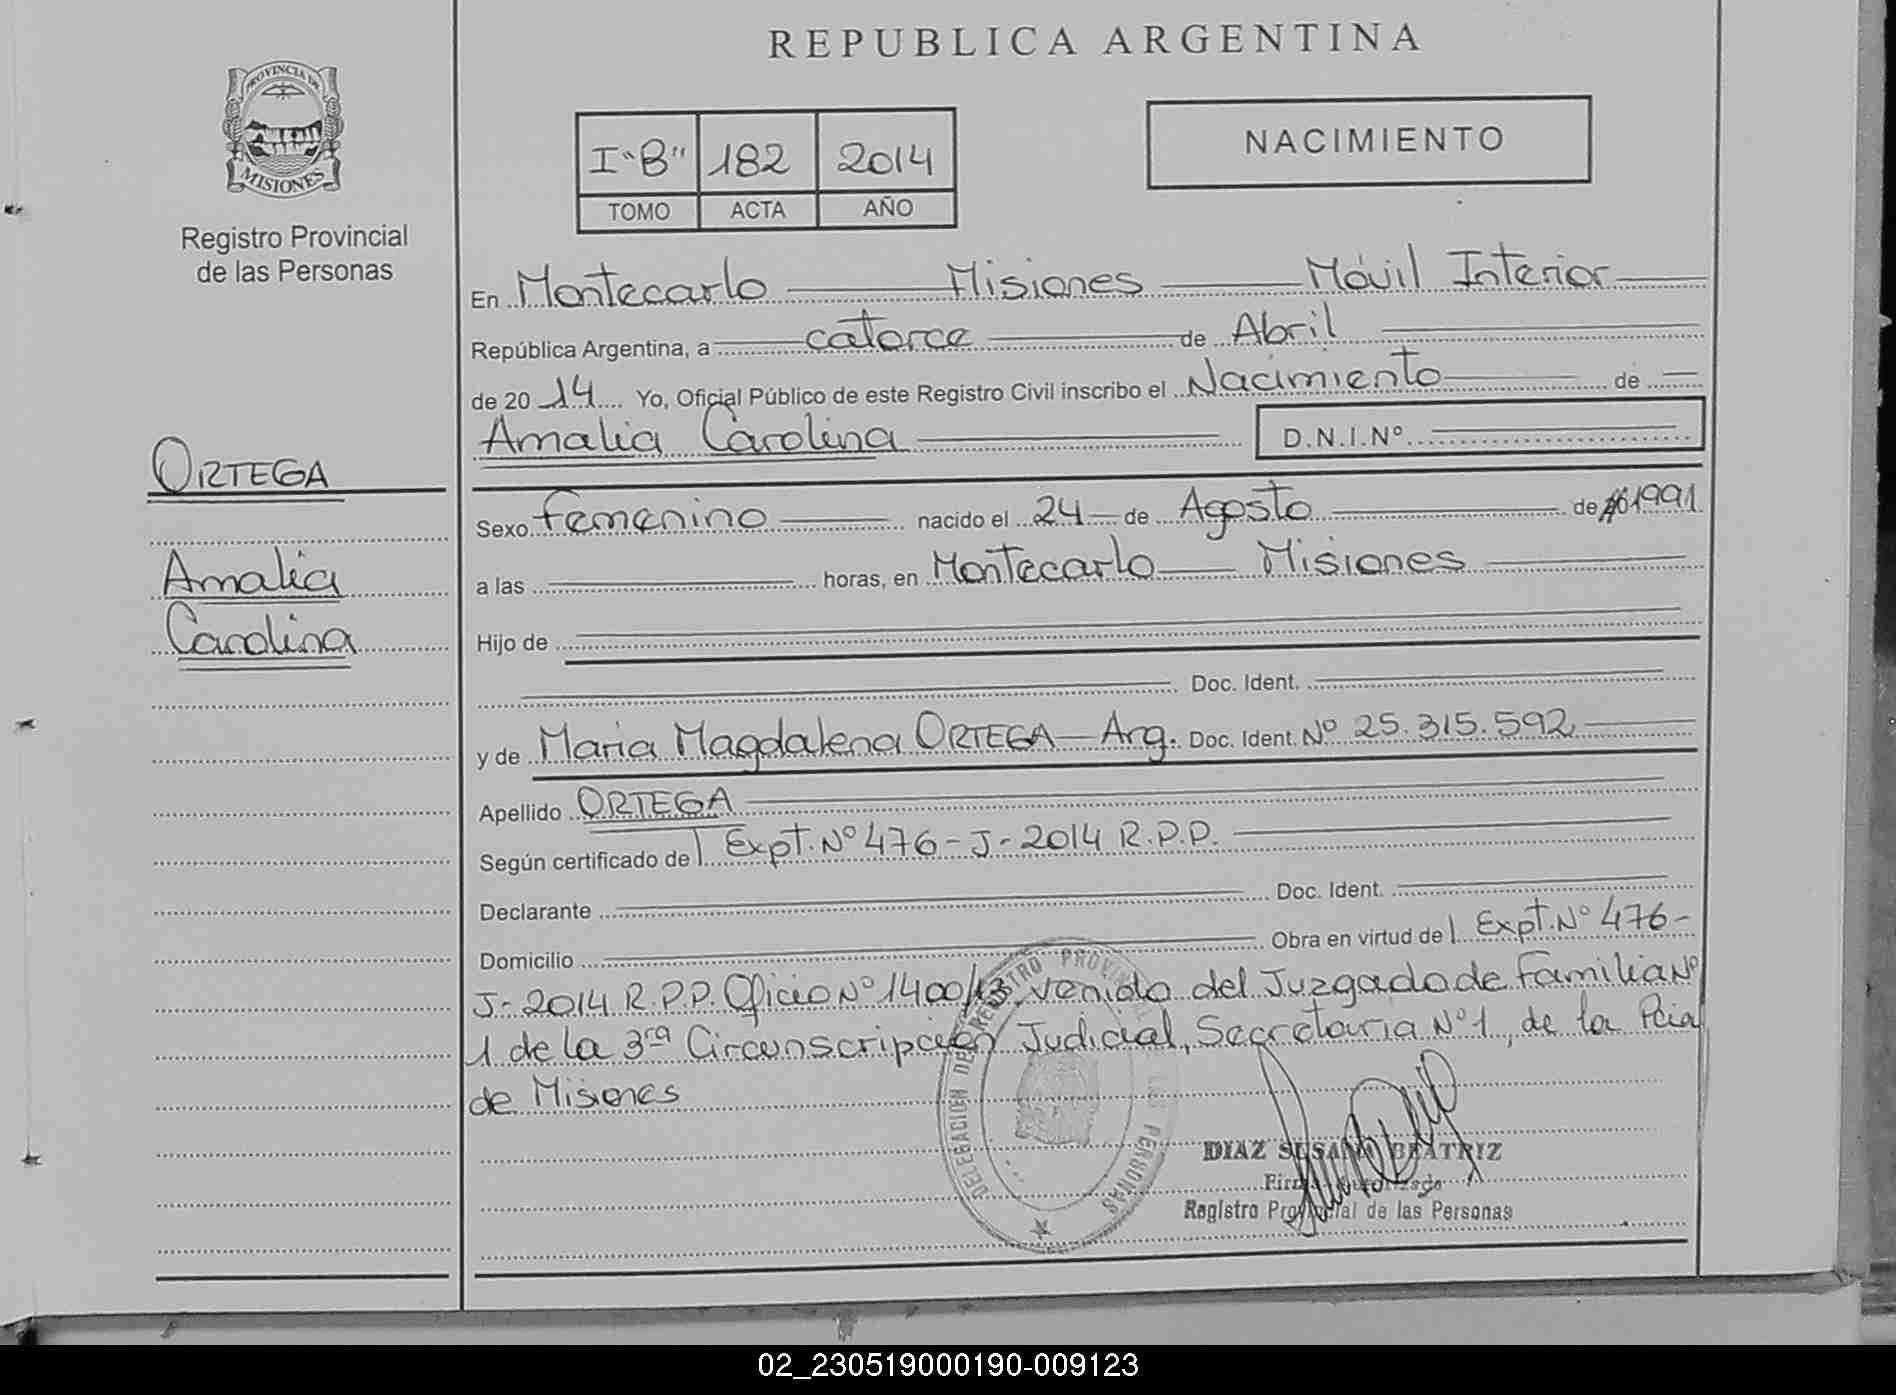 REPUBLICA ARGENTINA
PROVINCIA DE
MISIONES
Registro Provincial
de las Personas
I "B" 182 2014
TOMO ACTA AÑO
NACIMIENTO
En Montecarlo Misiones Móvil Interior
República Argentina, a catorce de Abril
de 20 14 Yo, Oficial Público de este Registro Civil inscribo el Nacimiento de
Amalia Carolina D.N.I.Nº
ORTEGA
Sexo femenino nacido el 24 de Agosto de 1991
Amalia
Carolina
a las horas, en Montecarlo Misiones
Hijo de
Doc. Ident.
y de Maria Magdalena ORTEGA Arg. Doc. Ident. Nº 25.315.592
Apellido ORTEGA
Según certificado de Expt. Nº 476-J-2014 R.P.P.
Declarante Doc. Ident.
Domicilio Obra en virtud de Expt. Nº 476-
J-2014 R.P.P. Oficio Nº 1400/13, venido del Juzgado de Familia Nº
1 de la 3ra Circunscripción Judicial, Secretaria Nº 1, de la Pcia
de Misiones
DELEGACION DEL REGISTRO PROVINCIAL DE LAS PERSONAS
DIAZ SUSANA BEATRIZ
Firma Autorizada
Registro Provincial de las Personas
02_230519000190-009123